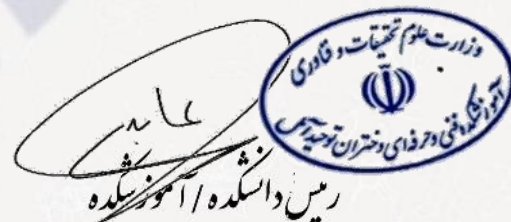 وزارت علوم تحقیقات و فناوری
آموزشکده فنی و حرفه‌ای دختران توحید آمل
رییس دانشکده / آموزشکده